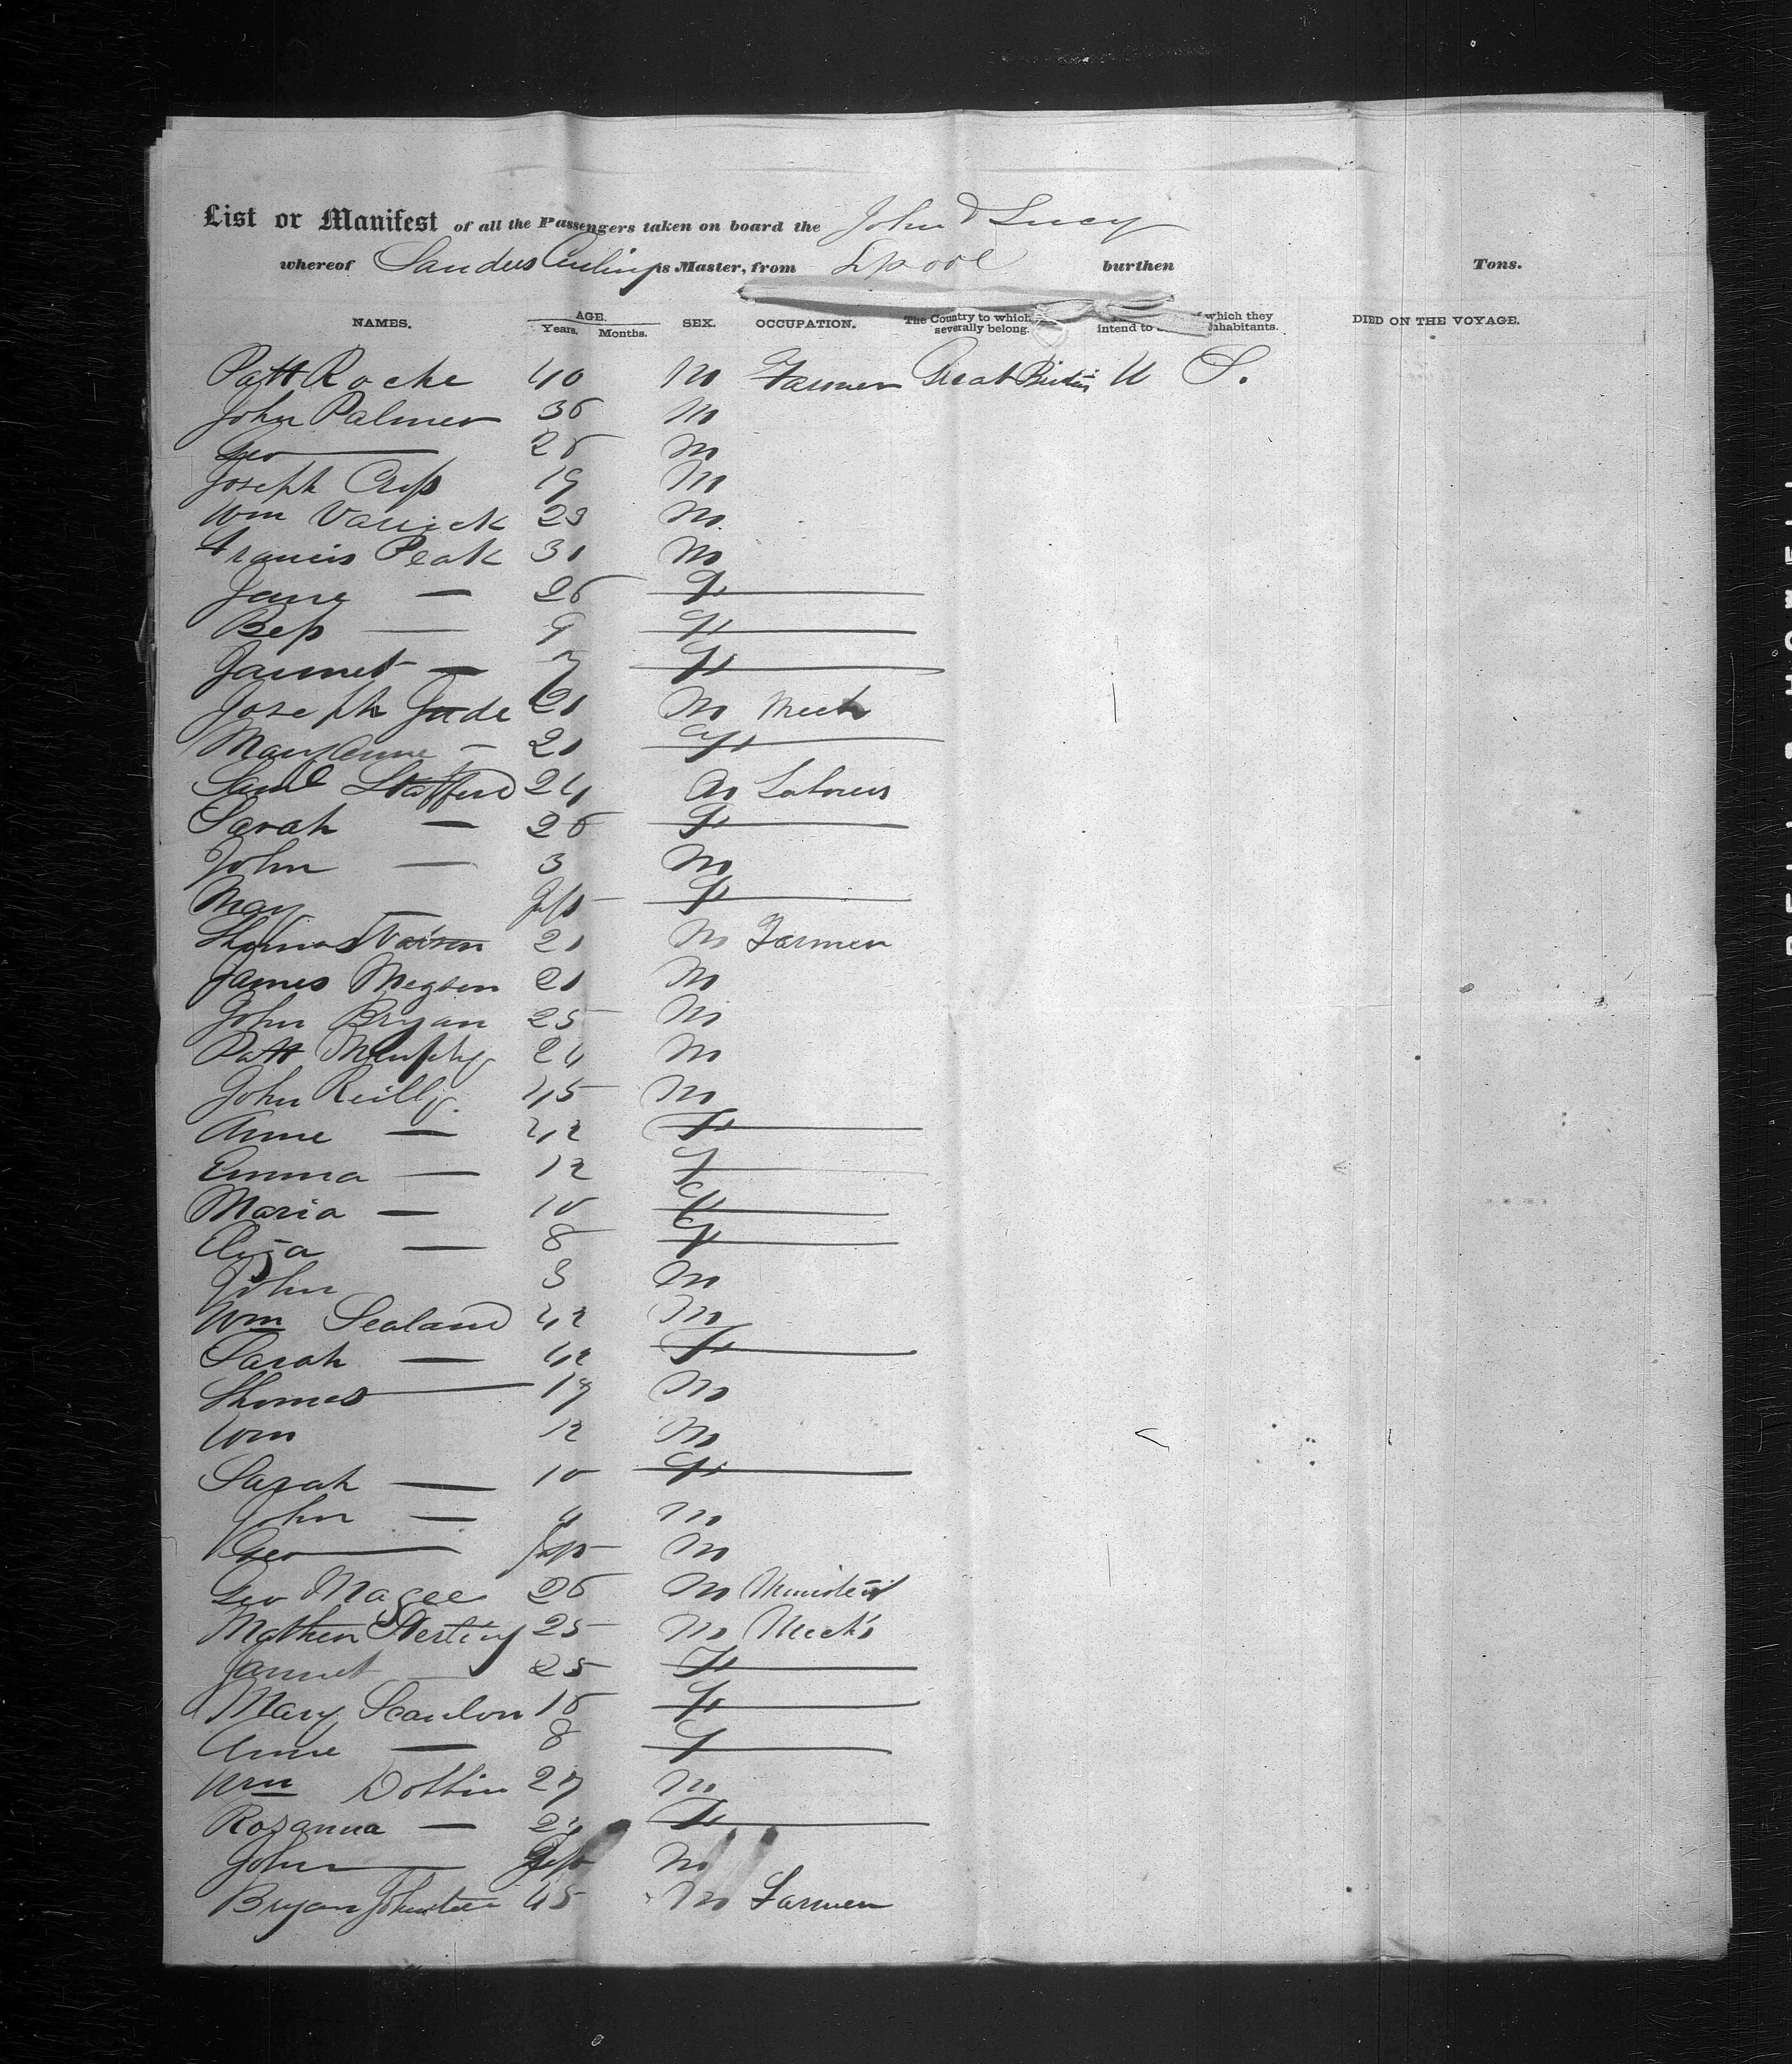 List or Manifest of all the Passengers taken on board the John & Lucy
whereof Sandus is Master, from Lpool burthen Tons.
NAMES. AGE. Years. Months. SEX. OCCUPATION. The Country to which severally belong. intend to which they inhabitants. DIED ON THE VOYAGE.
Patt Roche 40 M Farmer Great Britain U S.
John Palmer 36 M
Geo — 26 M
Joseph 19 M
Wm Varrick 23 M
Francis Peak 31 M
Jane — 26 F
Bess — 9 F
Jannet — 7 F
Joseph Jude 21 M Mech
Mary Anne — 21 F
Saml Stafford 24 M Laborers
Sarah — 26 F
John — 3 M
Mary — Inf F
Thomas 21 M Farmer
James Megson 21 M
John Bryan 25 M
Patt Murphy 24 M
John Reilly 45 M
Anne — 42 F
Emma — 12 F
Maria — 10 F
Eliza — 8 F
John 3 M
Wm Sealand 42 M
Sarah — 42 F
Thomas — 17 M
Wm 12 M
Sarah — 10 F
John — 4 M
Geo — Inf M
Geo Magee 26 M Minister
Mathew 25 M Mechs
Jannet — 25 F
Mary Scanlon 16 F
Anne — 8 F
Wm Dobbin 27 M
Rosanna — 24 F
John — Inf M
Bryan 45 M Farmer